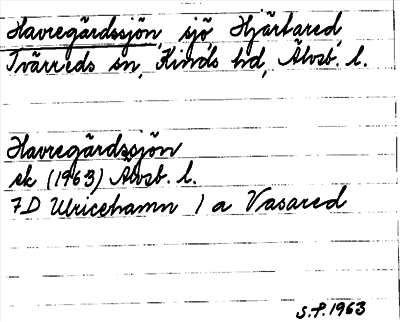 Havregärdssjön, sjö, Hjärtared,
Tvärreds sn, Kinds hd, Älvsb. l.
Havregärdssjön
ek (1963) Älvsb. l.
7D Ulricehamn 1 a Vasared
S.P. 1963